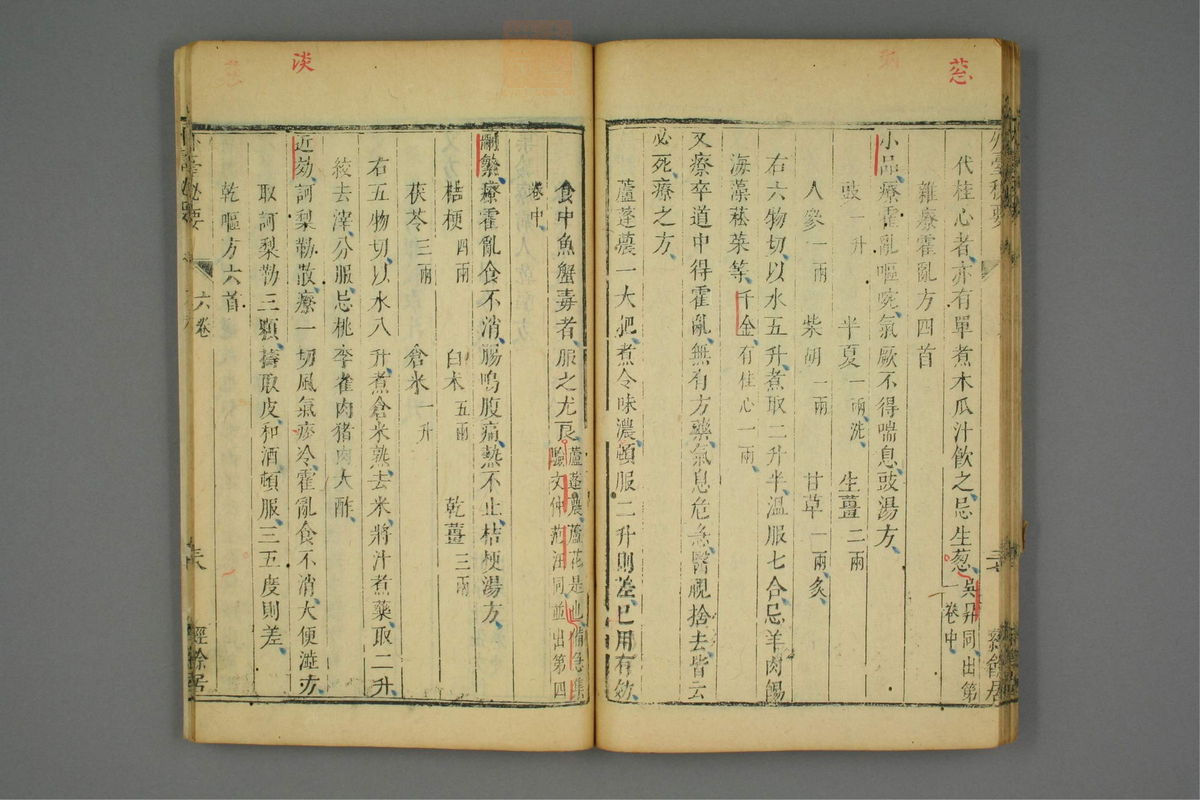 葱
代桂心者亦有單煮木瓜汁飲之忌生葱吳昇同出第一卷中
雜療霍亂方四首
小品療霍亂嘔噦氣厥不得喘息豉湯方
豉一升 半夏一兩洗 生薑二兩
人參一兩 柴胡一兩 甘草一兩炙
右六物切以水五升煮取二升半溫服七合忌羊肉餳
海藻菘菜等千金有桂心一兩
又療卒道中得霍亂無有方藥氣息危急醫視捨去皆云
必死療之方
蘆蓬蕽一大把煮令味濃頓服二升則差已用有效
食中魚蟹毒者服之尤良蘆蓬蕽蘆花是也備急集驗文仲范汪同並出第四
卷中
刪繁療霍亂食不消腸鳴腹痛熱不止桔梗湯方
桔梗四兩 白朮五兩 乾薑三兩
茯苓三兩 倉米一升
右五物切以水八升煮倉米熟去米將汁煮藥取二升
絞去滓分服忌桃李雀肉猪肉大酢
淡
近効訶梨勒散療一切風氣痰冷霍亂食不消大便澁方
取訶梨勒三顆擣取皮和酒頓服三五度則差
乾嘔方六首
六卷
經餘居